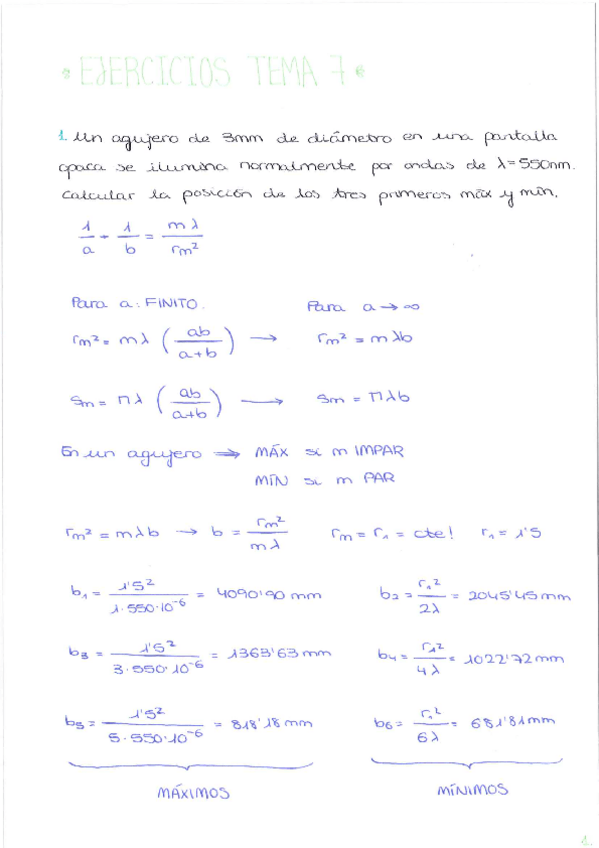 • EJERCICIOS TEMA 7 •
1. Un agujero de 3mm de diámetro en una pantalla
opaca se ilumina normalmente por ondas de λ=550nm.
Calcular la posición de los tres primeros máx y mín.
1/a + 1/b = mλ/rm²
Para a: FINITO. Para a → ∞
rm² = mλ (ab/(a+b)) → rm² = mλb
Sm = Πλ (ab/(a+b)) → Sm = Πλb
En un agujero → MÁX si m IMPAR
MÍN si m PAR
rm² = mλb → b = rm²/mλ rm = r1 = cte! r1 = 1'5
b1 = 1'5²/1·550·10⁻⁶ = 4090'90 mm b2 = r1²/2λ = 2045'45 mm
b3 = 1'5²/3·550·10⁻⁶ = 1363'63 mm b4 = r1²/4λ = 1022'72 mm
b5 = 1'5²/5·550·10⁻⁶ = 818'18 mm b6 = r1²/6λ = 681'81 mm
MÁXIMOS MÍNIMOS
1.